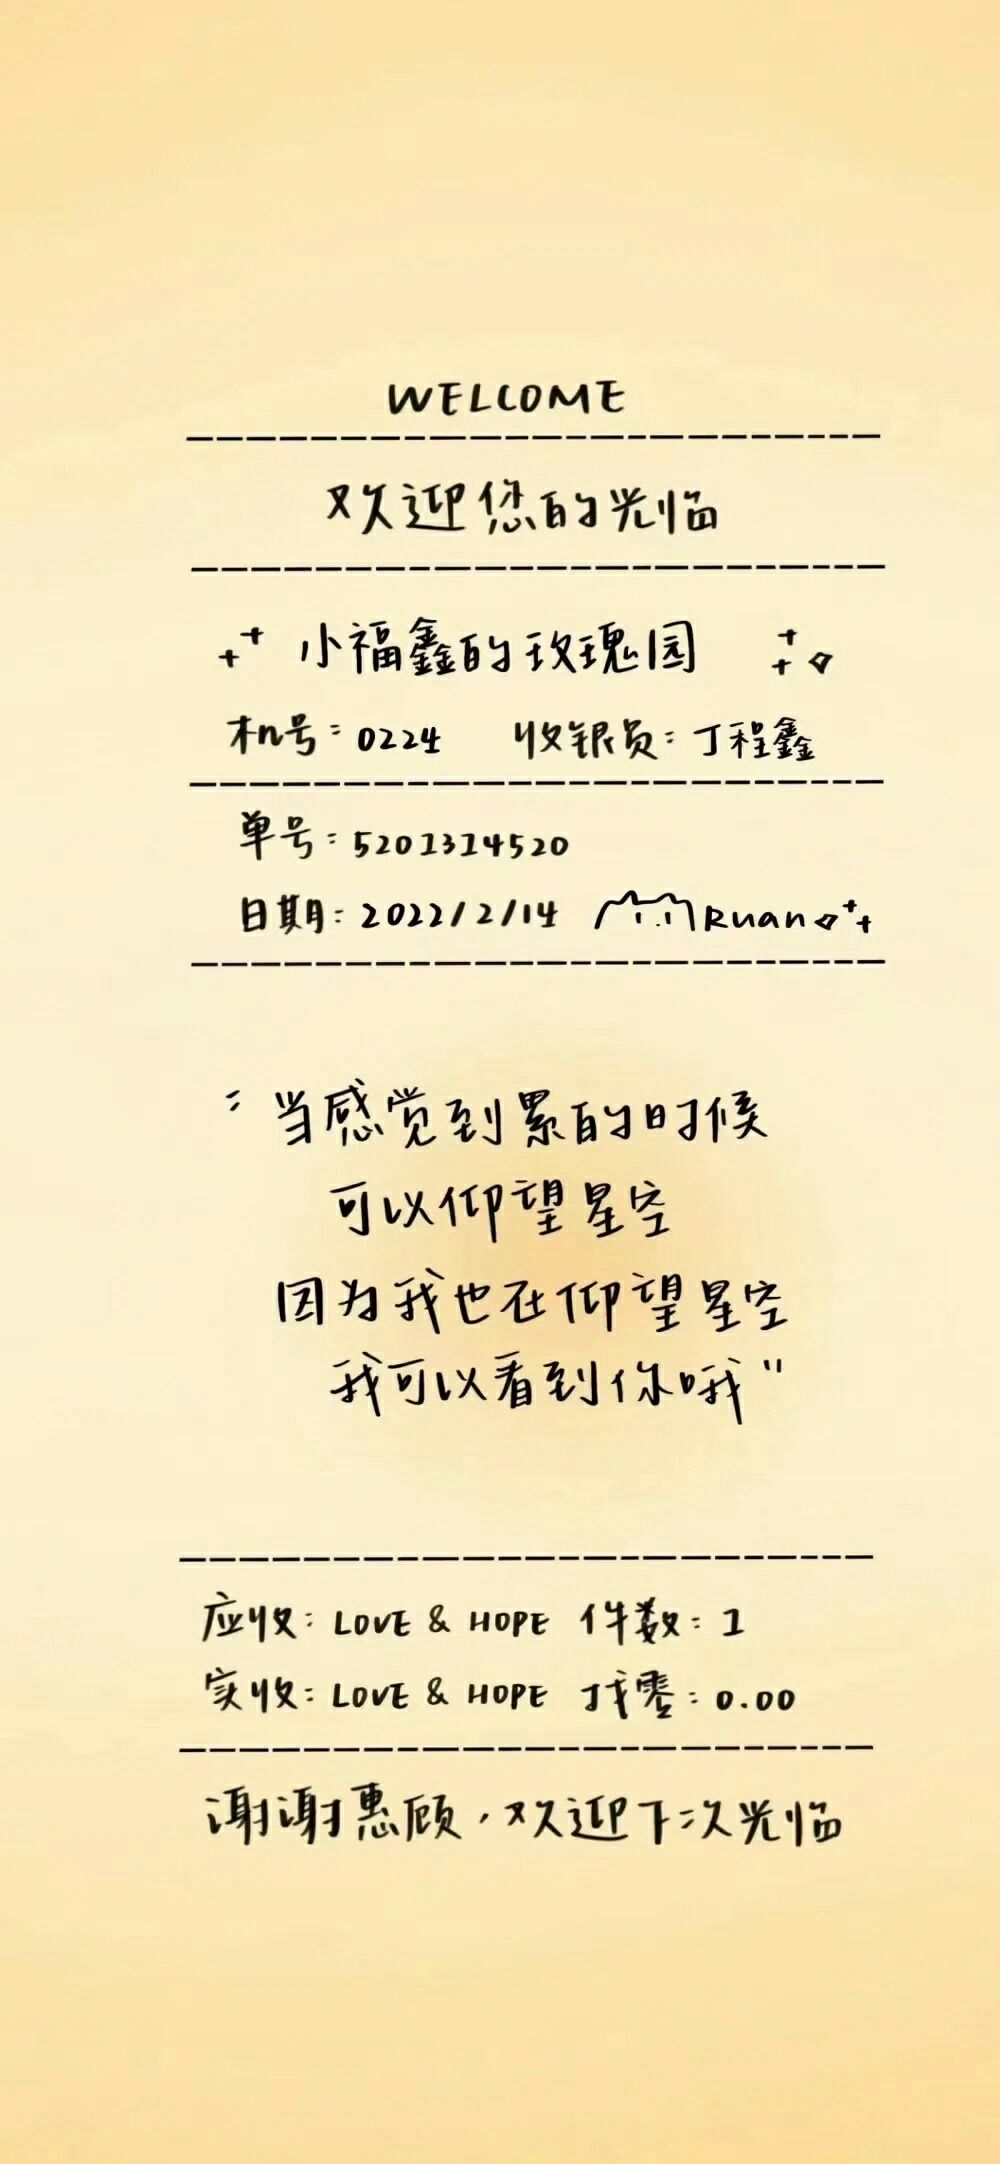 WELCOME
欢迎您的光临
小福鑫的玫瑰园
机号：0224 收银员：丁程鑫
单号：5201314520
日期：2022/2/14 Ruan
“当感觉到累的时候
可以仰望星空
因为我也在仰望星空
我可以看到你哦”
应收：LOVE & HOPE 件数：1
实收：LOVE & HOPE 找零：0.00
谢谢惠顾，欢迎下次光临